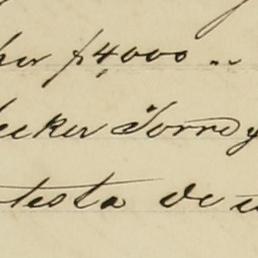 por $4,000 ..
ecker Torre y
testa de